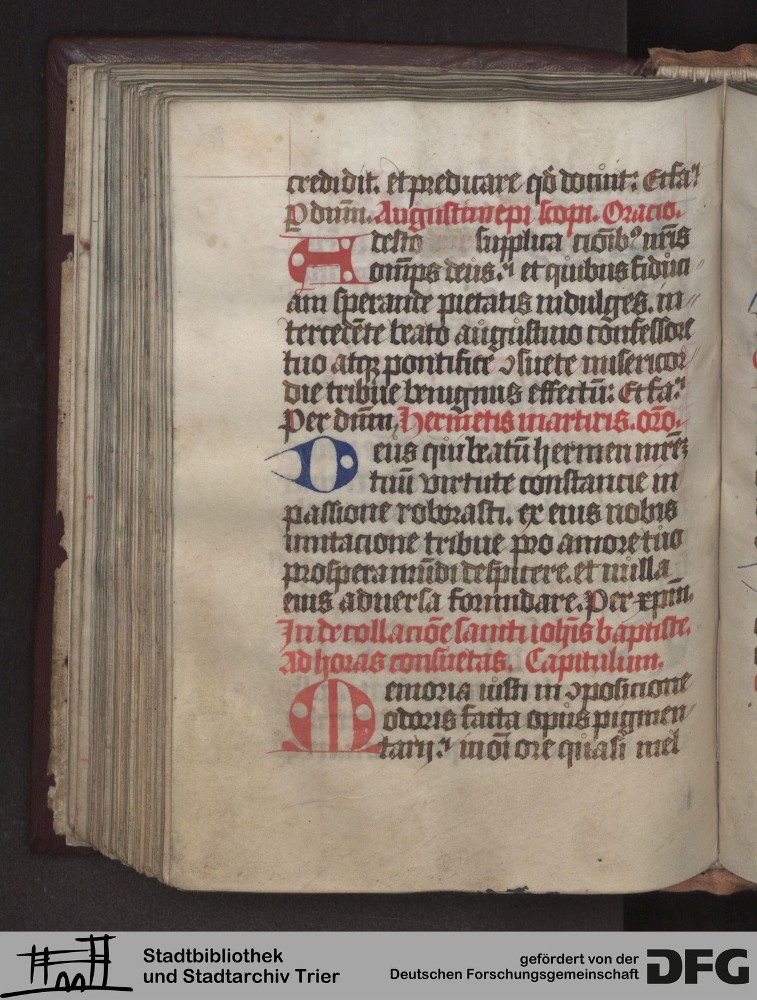 credidit. et predicare qđ docuit: Et fa⁊
P dnm̄. Augustini epi scopi. Oracio.
Adesto supplica cioīb⁹ nr̄is
omīps deus. et quibus fiduci
am sperande pietatis indulges. in
tercedēte beato augustino confessore
tuo atqꝫ pontifice ↄsuete misericor
die tribue benignus effectū: Et fa⁊
Per dnm̄, Hermetis martiris. orō.
Deus qui beatū hermen mrēꝫ
tuū virtute constancie in
passione roborasti. ex eius nobis
imitacione tribue pro amore tuo
prospera mūdi despicere. et nulla
eius aduersa formidare. Per xp̄m.
In decollaciōe sancti ioh̄is baptiste.
Ad horas consuetas. Capitulum.
Memoria iusti in ↄposicione
odoris facta opus pigmen
tarij. in oī ore quasi mel
Stadtbibliothek
und Stadtarchiv Trier
gefördert von der
Deutschen Forschungsgemeinschaft
DFG